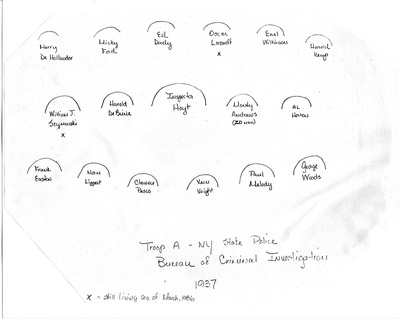 Harry
De Hollander
Micky
Ford
Ed
Doody
Oscar
x
Earl
Wilkinson
Harold
William J.
Szymanski
x
Harold
De Brine
Inspector
Hoyt
Monty
Andrews
AL
Horton
Frank
Easton
Norm
Lippert
Clarence
Pasco
Vern
Voight
Paul
Melody
George
Woods
Troop A - NY State Police
Bureau of Criminal Investigation
1937
x = still living as of March, 1986